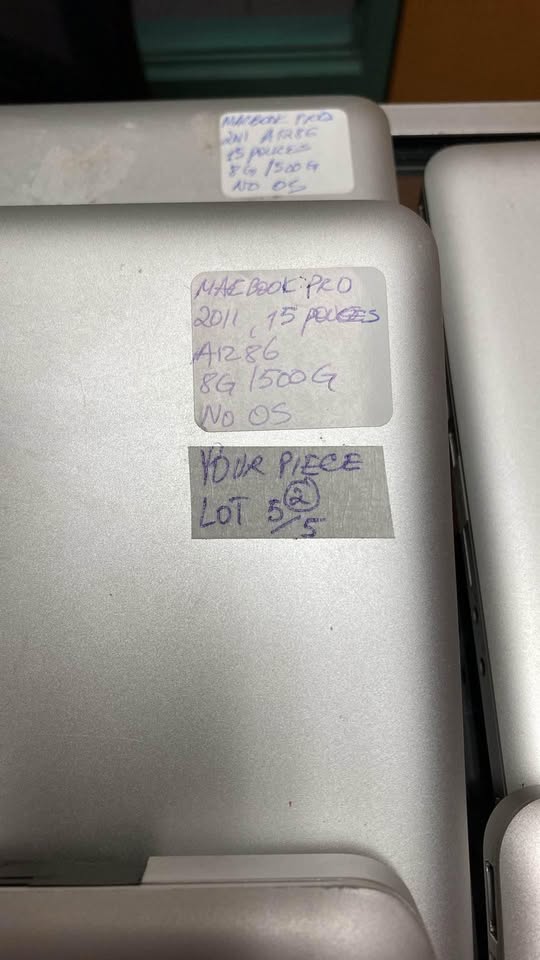 MACBOOK PRO
2011 A1286
15 POUCES
8G / 500G
NO OS
MACBOOK PRO
2011, 15 POUCES
A1286
8G / 500G
NO OS
YOUR PIECE
LOT 5 2/5